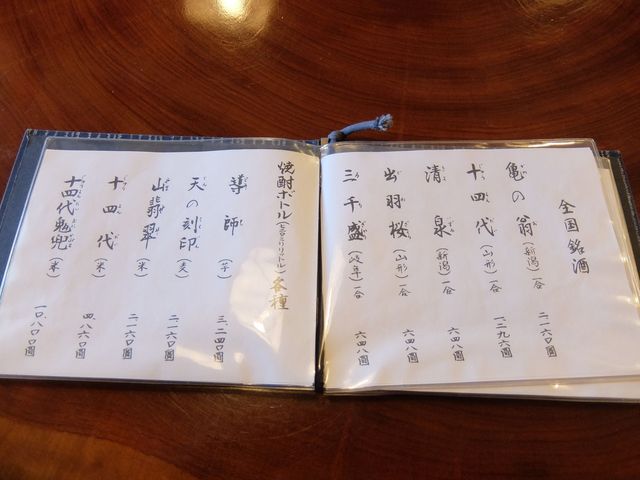 全国銘酒
亀の翁(新潟)一合 二、一六〇圓
十四代(山形)一合 一、二九六圓
清泉(新潟)一合 六四八圓
出羽桜(山形)一合 六四八圓
三千盛(岐阜)一合 六四八圓
焼酎ボトル 各種
導師(芋) 三、二四〇圓
天の刻印(麦) 二、一六〇圓
山翡翠(米) 二、一六〇圓
十四代(米) 四、八六〇圓
十四代鬼兜(米) 一〇、八〇〇圓